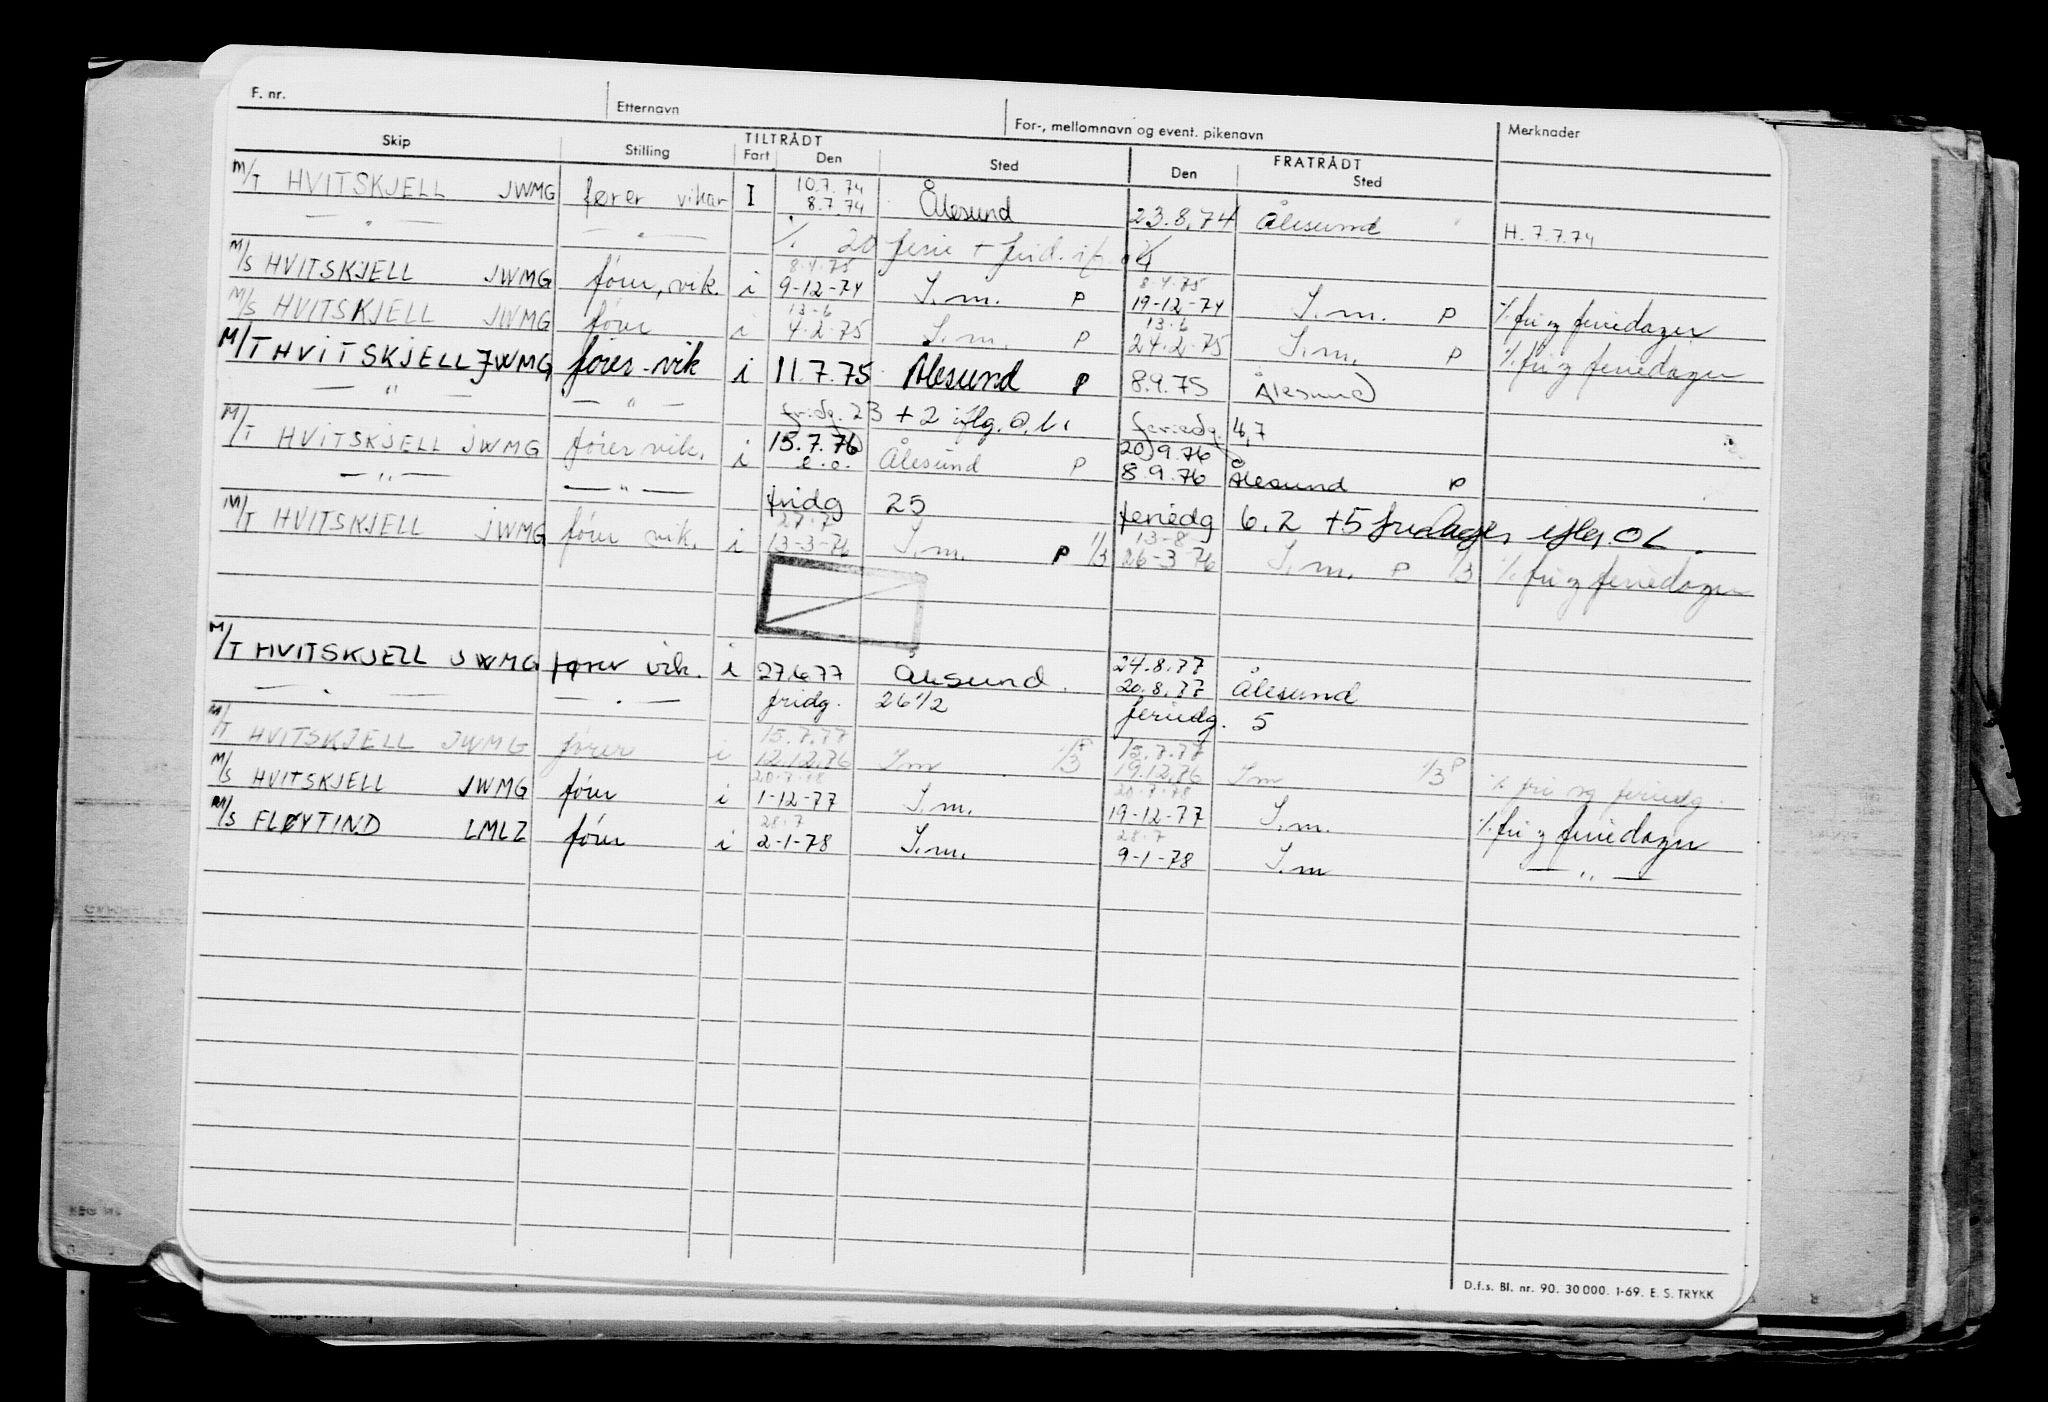 F. nr. Etternavn For-, mellomnavn og event. pikenavn Merknader
Skip Stilling TILTRÅDT Fart Den Sted FRATRÅDT Den Sted
M/T HVITSKJELL JWMG fører vikar I 10.7.74 8.7.74 Ålesund 23.8.74 Ålesund H. 7.7.74
— " — — " — ./. 20 ferie + frid.
M/S HVITSKJELL JWMG fører, vik. i 8.4.75 9-12-74 S.m. P 8.4.75 19-12-74 S.m. P ./. fri og feriedager
M/S HVITSKJELL JWMG fører i 13-6 4-2-75 S.m. P 13.6 24-2-75 S.m. P ./. fri og feriedager
M/T HVITSKJELL JWMG fører-vik i 11.7.75 Ålesund P 8.9.75 Ålesund
— " — — " — fridg. 23 + 2 iflg. O.L. feriedg. 4,7
M/T HVITSKJELL JWMG fører vik. i 15.7.76 e.o. Ålesund P 20.9.76 8.9.76 Ålesund P
— " — — " — fridg 25 feriedg 6.2 +5 fridager iflg. OL.
M/T HVITSKJELL JWMG fører vik. i 27.7 13-3-76 S.m. P 1/3 13-8 26-3-76 S.m. P 1/3 ./. fri og feriedager
M/T HVITSKJELL JWMG fører vik. i 27.6.77 Ålesund. 24.8.77 20.8.77 Ålesund
— " — — " — fridg. 26 1/2 feriedg. 5
M/T HVITSKJELL JWMG fører i 15.7.77 12.12.76 Sm. 1/3 P 15.7.77 19.12.76 Sm 1/3 P ./. fri og feriedg.
M/S HVITSKJELL JWMG fører i 20.7.78 1-12-77 S.m. 20.7.78 19-12-77 S.m. ./. fri og feriedager
M/S FLØYTIND LMLZ fører i 28.7 2-1-78 S.m. 28.7 9-1-78 S.m — " —
D.f.s. Bl. nr. 90. 30 000. 1-69. E. S. TRYKK